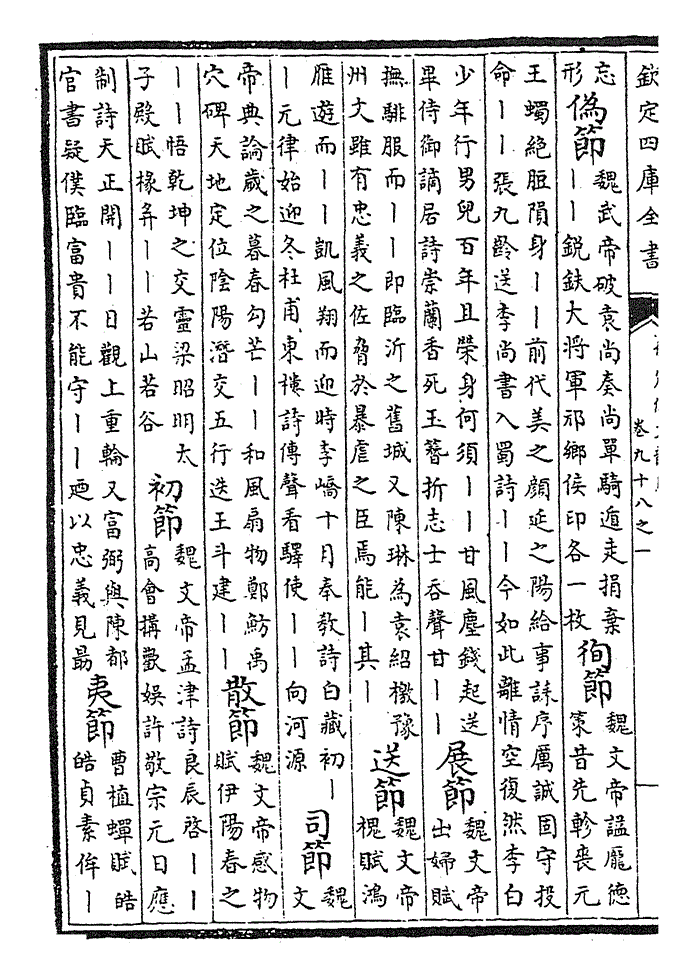 欽定四庫全書
卷九十八之一
忘
形
偽節
魏武帝破袁尚奏尚單騎遁走捐棄
｜｜鋭鈇大將軍邟鄉侯印各一枚
徇節
魏文帝諡龐德
策昔先軫喪元
王蠋絕脰隕身｜｜前代美之顔延之陽給事誄序厲誠固守投
命｜｜張九齡送李尚書入蜀詩｜｜今如此離情空復然李白
少年行男兒百年且榮身何須｜｜甘風塵錢起送
畢侍御謫居詩崇蘭香死玉簪折志士吞聲甘｜｜
展節
魏文帝
出婦賦
撫騑服而｜｜即臨沂之舊城又陳琳為袁紹檄豫
州文雖有忠義之佐脅於暴虐之臣焉能｜其｜
送節
魏文帝
槐賦鴻
雁遊而｜｜凱風翔而迎時李嶠十月奉教詩白藏初｜
｜元律始迎冬杜甫東樓詩傳聲看驛使｜｜向河源
司節
魏
文
帝典論歲之暮春勾芒｜｜和風扇物鄭魴禹
穴碑天地定位陰陽潛交五行迭王斗建｜｜
散節
魏文帝感物
賦伊陽春之
｜｜悟乾坤之交靈梁昭明太
子殿賦椽弇｜｜若山若谷
初節
魏文帝孟津詩良辰啓｜｜
高會構歡娛許敬宗元日應
制詩天正開｜｜日觀上重輪又富弼與陳都
官書疑僕臨富貴不能守｜｜廼以忠義見最
夷節
曹植蟬賦皓
皓貞素侔｜